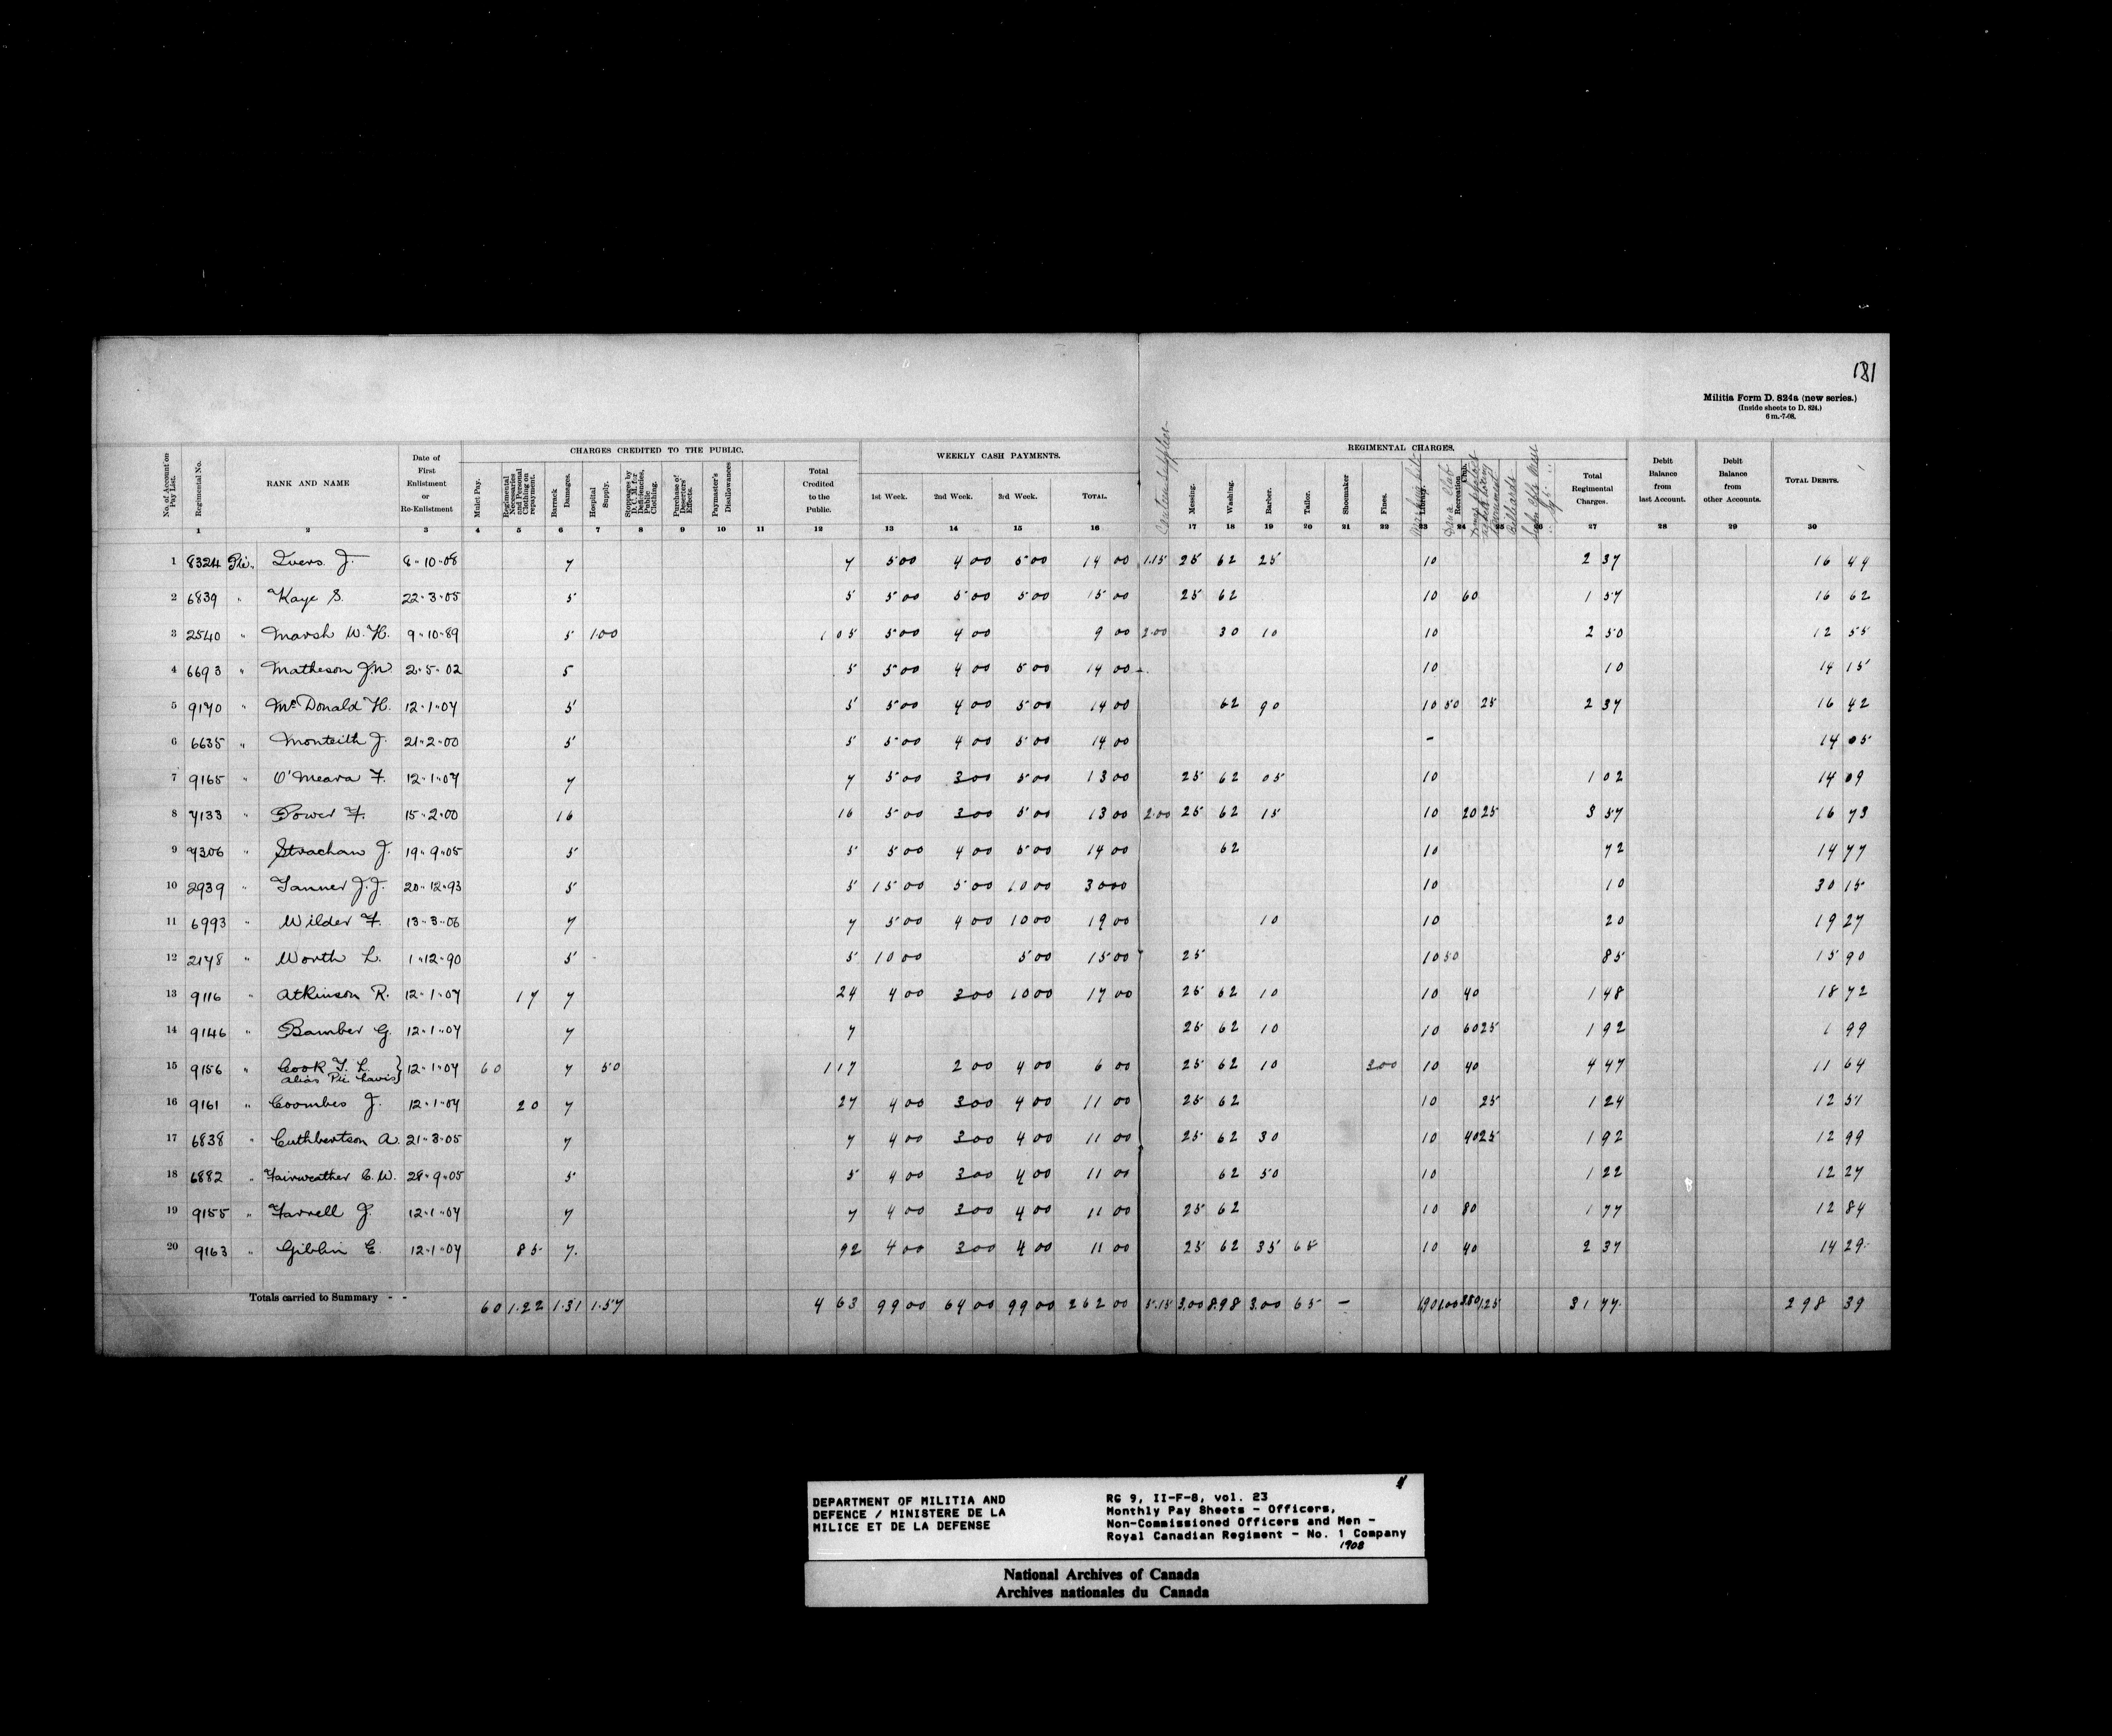 181
Militia Form D. 824a (new series.)
(Inside sheets to D. 824.)
6 m.-7-08.
CHARGES CREDITED TO THE PUBLIC.
WEEKLY CASH PAYMENTS.
REGIMENTAL CHARGES.
No. of Account on Pay List. Regimental No. RANK AND NAME Date of First Enlistment or Re-Enlistment Mulct Pay. Regimental Necessaries and Personal Clothing on repayment. Barrack Damages. Hospital Supply. Stoppages by D. C. M. for Deficiencies, Public Clothing. Purchase of Deserters' Effects. Paymaster's Disallowances Total Credited to the Public. 1st Week. 2nd Week. 3rd Week. TOTAL. Canteen Supplies Messing. Washing. Barber. Tailor. Shoemaker Fines. Library. Recreation Club. Billiards Total Regimental Charges. Debit Balance from last Account. Debit Balance from other Accounts. TOTAL DEBITS.
1 2 3 4 5 6 7 8 9 10 11 12 13 14 15 16 17 18 19 20 21 22 23 24 25 26 27 28 29 30
1 8324 Pte. Ivers J. 8-10-08 7 7 5 00 4 00 5 00 14 00 1.15 25 62 25 10 2 37 16 44
2 6839 " Kaye S. 22-3-05 5 5 5 00 5 00 5 00 15 00 25 62 10 60 1 57 16 62
3 2540 " Marsh W. H. 9-10-89 5 1.00 1 05 5 00 4 00 9 00 2.00 30 10 10 2 50 12 55
4 6693 " Matheson J.N 2-5-02 5 5 5 00 4 00 5 00 14 00 10 10 14 15
5 9170 " McDonald H. 12-1-07 5 5 5 00 4 00 5 00 14 00 62 90 10 50 25 2 37 16 42
6 6635 " Monteith J. 21-2-00 5 5 5 00 4 00 5 00 14 00 - 14 05
7 9165 " O'Meara F. 12-1-07 7 7 5 00 3 00 5 00 13 00 25 62 05 10 1 02 14 09
8 7133 " Power F. 15-2-00 16 16 5 00 3 00 5 00 13 00 2.00 25 62 15 10 20 25 3 57 16 73
9 7306 " Strachan J. 19-9-05 5 5 5 00 4 00 5 00 14 00 62 10 72 14 77
10 2939 " Tanner J. J. 20-12-93 5 5 15 00 5 00 10 00 30 00 10 10 30 15
11 6993 " Wilder F. 13-3-06 7 7 5 00 4 00 10 00 19 00 10 10 20 19 27
12 2178 " Worth L. 1-12-90 5 5 10 00 5 00 15 00 25 10 50 85 15 90
13 9116 " Atkinson R. 12-1-07 17 7 24 4 00 3 00 10 00 17 00 25 62 10 10 40 1 48 18 72
14 9146 " Bamber G. 12-1-07 7 7 25 62 10 10 60 25 1 92 1 99
15 9156 " Cook T. L. } 12-1-07 60 7 50 1 17 2 00 4 00 6 00 25 62 10 3 00 10 40 4 47 11 64
alias Pte
16 9161 " Coombes J. 12-1-07 20 7 27 4 00 3 00 4 00 11 00 25 62 10 25 1 24 12 51
17 6838 " Cuthbertson A. 21-3-05 7 7 4 00 3 00 4 00 11 00 25 62 30 10 40 25 1 92 12 99
18 6882 " Fairweather C. W. 28-9-05 5 5 4 00 3 00 4 00 11 00 62 50 10 1 22 12 27
19 9155 " Farrell J. 12-1-07 7 7 4 00 3 00 4 00 11 00 25 62 10 80 1 77 12 84
20 9163 " Giblin E. 12-1-07 85 7 92 4 00 3 00 4 00 11 00 25 62 35 65 10 40 2 37 14 29
Totals carried to Summary - - 60 1.22 1.31 1.57 4 63 99 00 64 00 99 00 262 00 5.15 3.00 8.98 3.00 65 - 1.90 1.00 3.80 1.25 31 77 298 39
DEPARTMENT OF MILITIA AND
DEFENCE / MINISTERE DE LA
MILICE ET DE LA DEFENSE
RG 9, II-F-8, vol. 23
Monthly Pay Sheets - Officers,
Non-Commissioned Officers and Men -
Royal Canadian Regiment - No. 1 Company
1908
National Archives of Canada
Archives nationales du Canada